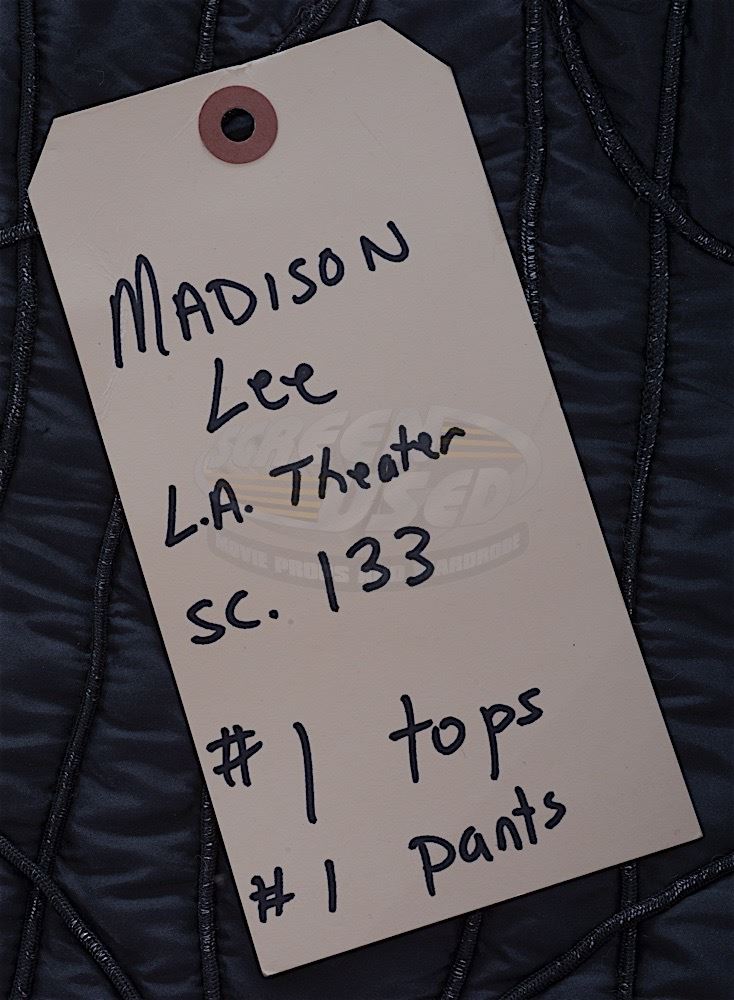 MADISON
Lee
L.A. Theater
SC. 133
#1 tops
#1 pants
SCREEN
USED
MOVIE PROPS AND WARDROBE